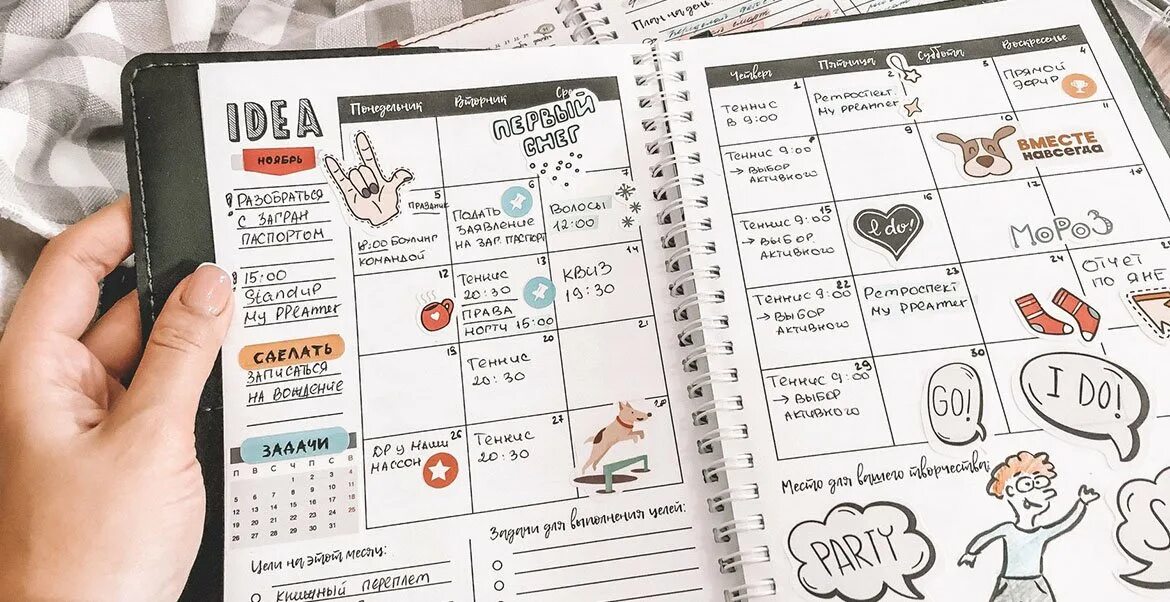 План на день:
IDEA
НОЯБРЬ
РАЗОБРАТЬСЯ
С ЗАГРАН
ПАСПОРТОМ
15:00
StandUp
My PPEamer
СДЕЛАТЬ
ЗАПИСАТЬСЯ
НА ВОЖДЕНИЕ
ЗАДАЧИ
П В С Ч П С В
1 2 3 4
5 6 7 8 9 10 11
12 13 14 15 16 17 18
19 20 21 22 23 24 25
26 27 28 29 30 31
Цели на этот месяц:
КНИЖНЫЙ ПЕРЕПЛЕТ
Понедельник Вторник
ПЕРВЫЙ
СНЕГ
5
ПРАЗДНИК
18:00 БОУЛИНГ
КОМАНДОЙ
6
ПОДАТЬ
ЗАЯВЛЕНИЕ
НА ЗАГ. ПАСПОРТ
7
ВОЛОСЫ
12:00
12
13
ТЕННИС
20:30
ПРАВА
НОГТИ 15:00
14
КВИЗ
19:30
19
20
ТЕННИС
20:30
21
26
ДР У МАШИ
МАССОН
27
ТЕННИС
20:30
28
Задачи для выполнения целей:
Четверг Пятница Суббота Воскресенье
1
ТЕННИС
В 9:00
2
РЕТРОСПЕКТ
My PPEamer
3
4
ПРЯМОЙ
ЭФИР
8
ТЕННИС 9:00
→ ВЫБОР
АКТИВНОГО
9
10
ВМЕСТЕ
НАВСЕГДА
11
15
ТЕННИС 9:00
→ ВЫБОР
АКТИВНОГО
16
I do!
17
МОРОЗ
18
22
ТЕННИС 9:00
→ ВЫБОР
АКТИВНОГО
23
РЕТРОСПЕКТ
My PPEamer
24
ОТЧЕТ
ПО ЯНЕ
29
ТЕННИС 9:00
→ ВЫБОР
АКТИВНОГО
30
GO!
I DO!
Место для вашего творчества:
PARTY